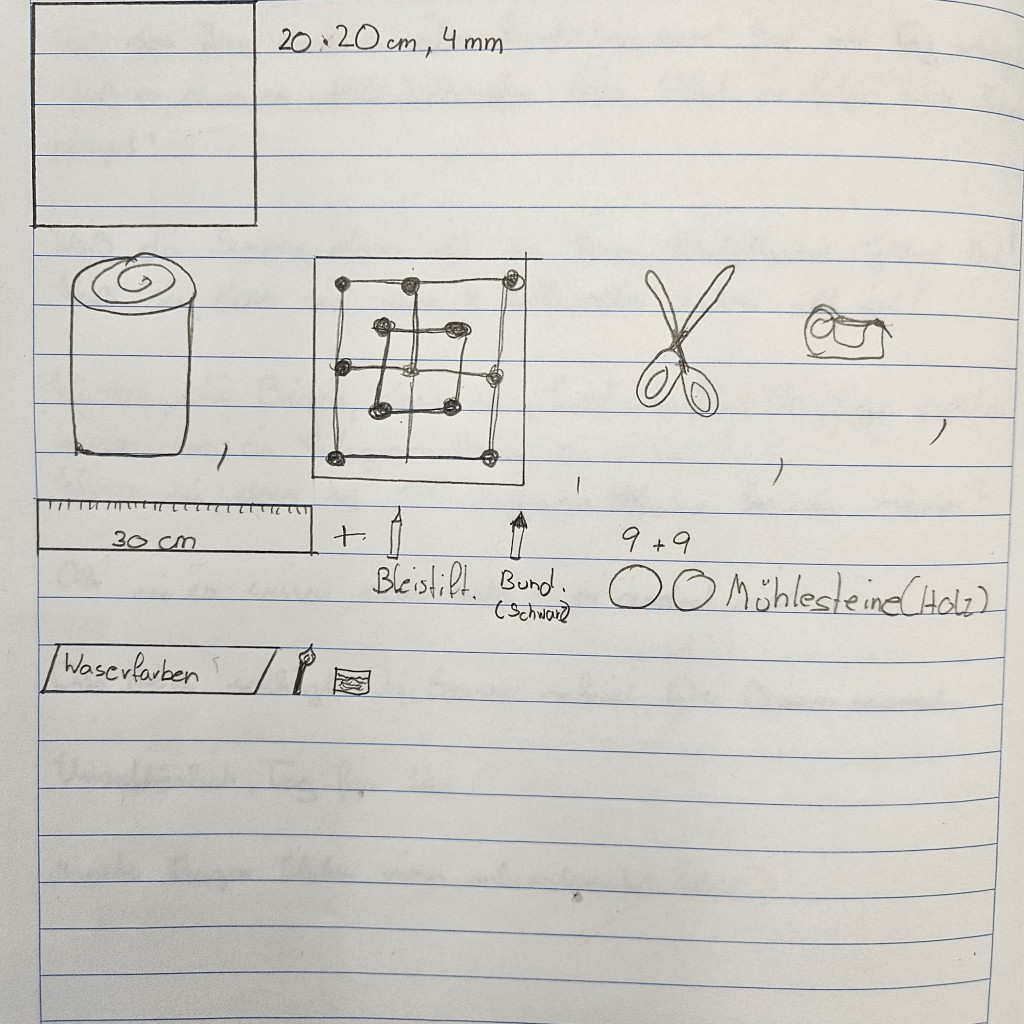 20 · 20 cm, 4 mm
30 cm
+
9 + 9
Bleistift. Bund. Mühlesteine (Holz)
(Schwarz)
Waserfarben